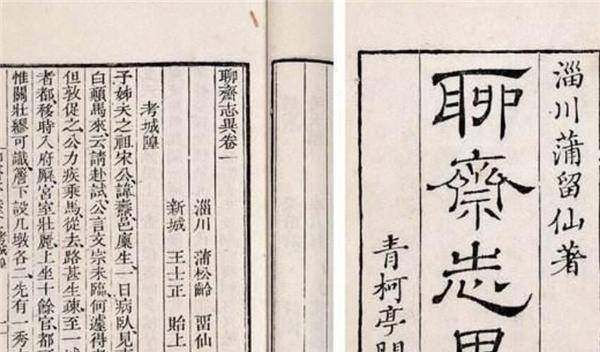 淄川蒲留仙著
聊齋志異
青柯亭開
聊齋志異卷一
淄川 蒲松齡 畱仙
新城 王士正 貽上
考城隍
子姊夫之祖宋公諱燾邑廩生一日病臥見
白顚馬來云請赴試公言文宗未臨何遽得
但敦促之公力疾乘馬從去路甚生疎至一城
者都移時入府廨宮室壯麗上坐十餘官都
惟關壯繆可識簷下設几墩各二先有一秀